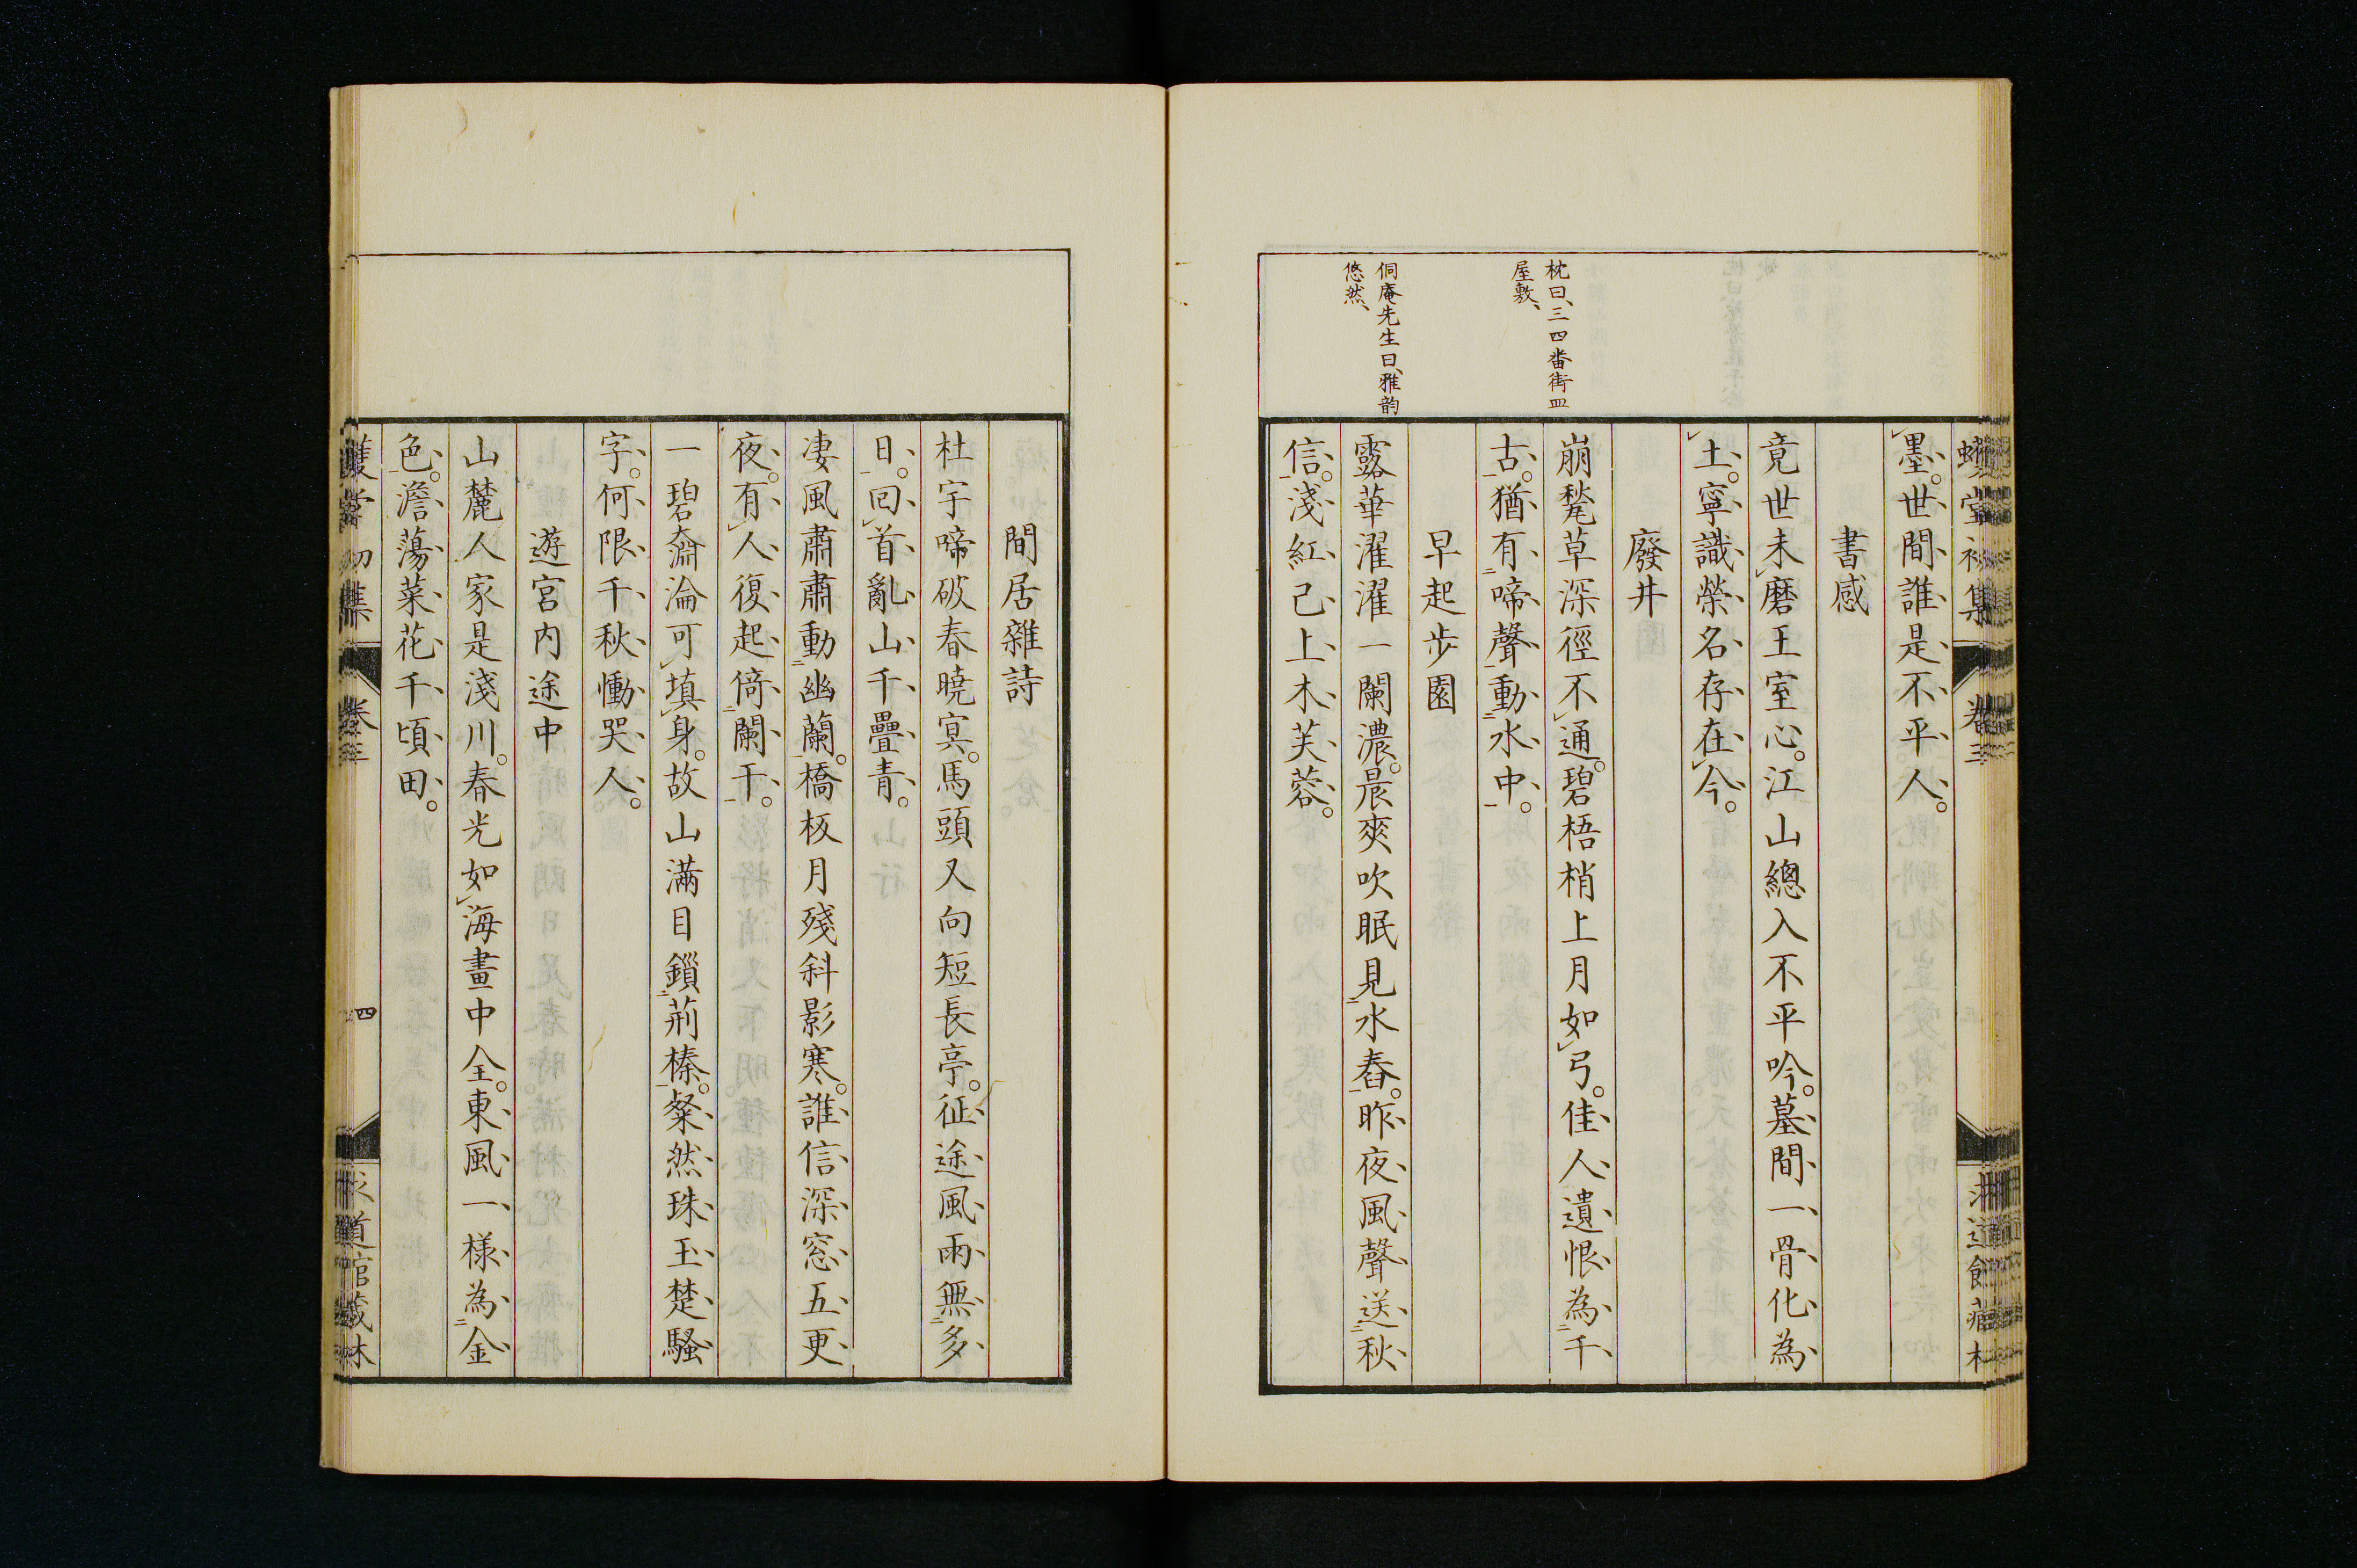 墨。世間誰是不平人。
書感
竟世未磨王室心。江山總入不平吟。墓間一骨化為
土。寧識榮名存在今。
廢井
枕曰、三四番街皿
屋敷、
崩甃草深徑不通。碧梧梢上月如弓。佳人遺恨為千
古。猶有啼聲動水中。
早起步園
侗庵先生曰、雅韵
悠然、
露華濯濯一闌濃。晨爽吹眠見水舂。昨夜風聲送秋
信。淺紅已上木芙蓉。
間居雜詩
杜宇啼破春曉冥。馬頭又向短長亭。征途風雨無多
日。回首亂山千疊青。
凄風肅肅動幽蘭。橋板月殘斜影寒。誰信深窓五更
夜。有人復起倚闌干。
一碧奫淪可填身。故山滿目鎖荊榛。粲然珠玉楚騷
字。何限千秋慟哭人。
遊宮内途中
山麓人家是淺川。春光如海畫中全。東風一樣為金
色。澹蕩菜花千頃田。
卷三
四